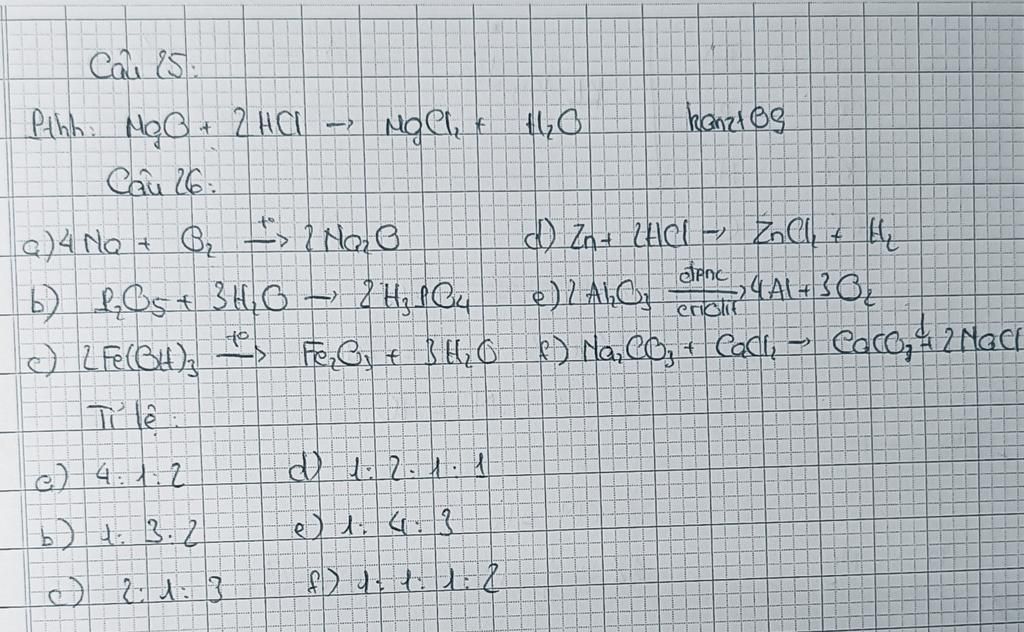 Câu 25:
Pthh: MgO + 2HCl → MgCl₂ + H₂O kanzt09
Câu 26:
a) 4Na + O₂ –t°→ 2Na₂O d) Zn + 2HCl → ZnCl₂ + H₂
b) P₂O₅ + 3H₂O → 2H₃PO₄ e) 2Al₂O₃ –đpnc/criolit→ 4Al + 3O₂
c) 2Fe(OH)₃ –t°→ Fe₂O₃ + 3H₂O f) Na₂CO₃ + CaCl₂ → CaCO₃↓ + 2NaCl
Tỉ lệ:
a) 4:1:2 d) 1:2:1:1
b) 1:3:2 e) 1:4:3
c) 2:1:3 f) 1:1:1:2